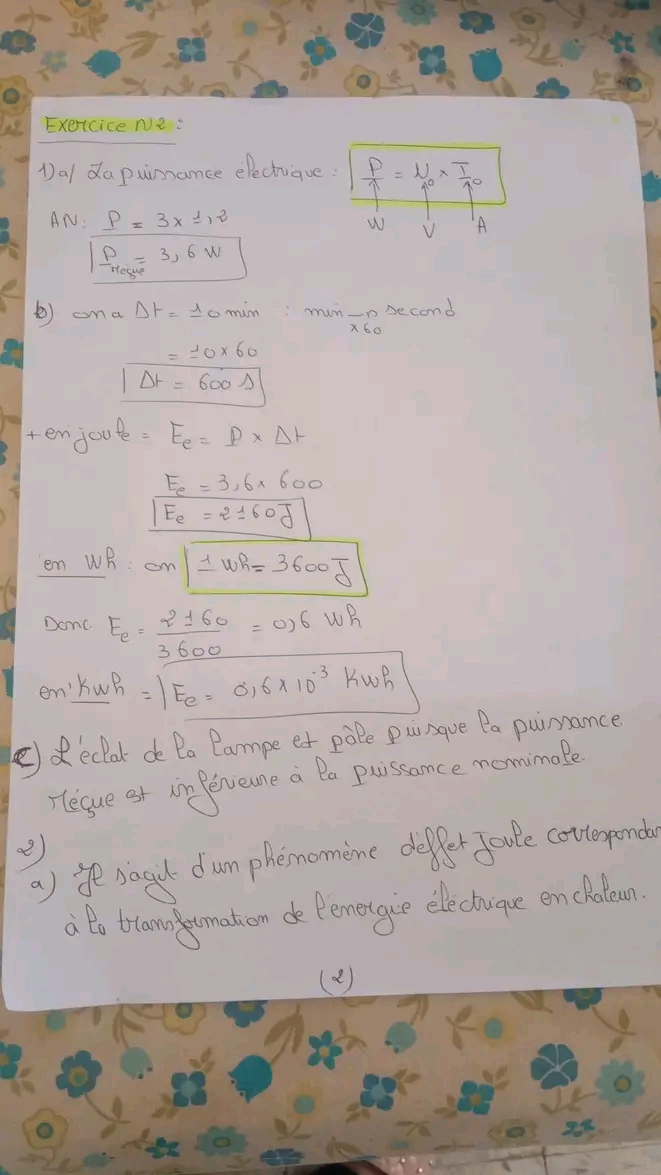 Exercice N2 :
1) a/ La puissance électrique : P = U₀ × I₀
W V A
AN: P = 3 × 1,2
P reçue = 3,6 W
b) on a Δt = 10 min : min → second
×60
= 10 × 60
Δt = 600 s
+ en joule = Ee = P × Δt
Ee = 3,6 × 600
Ee = 2160 J
en Wh : on 1 Wh = 3600 J
Donc Ee = 2160/3600 = 0,6 Wh
en Kwh = Ee = 0,6 × 10⁻³ Kwh
c) L'éclat de la lampe et pâle puisque la puissance
réçue est inférieure à la puissance nominale.
2)
a) Il s'agit d'un phénomène d'effet Joule correspondan
à la transformation de l'energie électrique en chaleur.
(2)